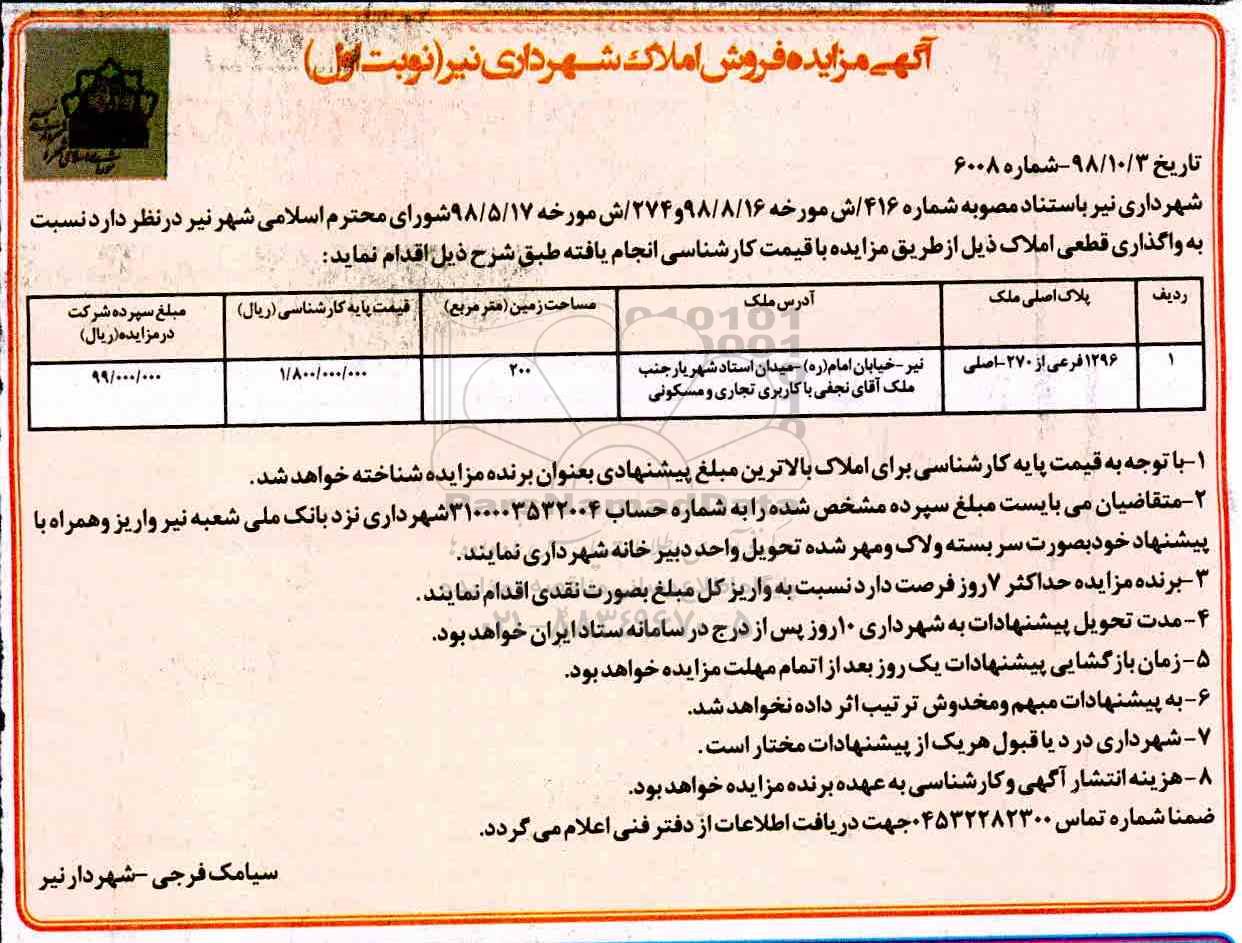 آگهی مزایده فروش املاک شهرداری نیر (نوبت اول)
تاریخ ۹۸/۱۰/۳-شماره ۶۰۰۸
شهرداری نیر باستناد مصوبه شماره ۴۱۶/ش مورخه ۹۸/۸/۱۶و۲۷۴/ش مورخه ۹۸/۵/۱۷شورای محترم اسلامی شهر نیر درنظر دارد نسبت
به واگذاری قطعی املاک ذیل ازطریق مزایده با قیمت کارشناسی انجام یافته طبق شرح ذیل اقدام نماید:
ردیف پلاک اصلی ملک آدرس ملک مساحت زمین (متر مربع) قیمت پایه کارشناسی (ریال) مبلغ سپرده شرکت درمزایده(ریال)
۱ ۱۲۹۶فرعی از ۲۷۰-اصلی نیر -خیابان امام(ره) -میدان استاد شهریار جنب ملک آقای نجفی با کاربری تجاری و مسکونی ۲۰۰ ۱/۸۰۰/۰۰۰/۰۰۰ ۹۹/۰۰۰/۰۰۰
۱-با توجه به قیمت پایه کارشناسی برای املاک بالاترین مبلغ پیشنهادی بعنوان برنده مزایده شناخته خواهد شد.
۲-متقاضیان می بایست مبلغ سپرده مشخص شده را به شماره حساب ۳۱۰۰۰۰۳۵۳۲۰۰۴شهرداری نزد بانک ملی شعبه نیر واریز وهمراه با
پیشنهاد خودبصورت سر بسته ولاک ومهر شده تحویل واحد دبیر خانه شهرداری نمایند.
۳-برنده مزایده حداکثر ۷روز فرصت دارد نسبت به واریز کل مبلغ بصورت نقدی اقدام نمایند.
۴-مدت تحویل پیشنهادات به شهرداری ۱۰روز پس از درج در سامانه ستاد ایران خواهد بود.
۵-زمان بازگشایی پیشنهادات یک روز بعد از اتمام مهلت مزایده خواهد بود.
۶-به پیشنهادات مبهم ومخدوش ترتیب اثر داده نخواهد شد.
۷-شهرداری در د یا قبول هریک از پیشنهادات مختار است.
۸-هزینه انتشار آگهی وکارشناسی به عهده برنده مزایده خواهد بود.
ضمنا شماره تماس ۰۴۵۳۲۲۸۲۳۰۰جهت دریافت اطلاعات از دفتر فنی اعلام می گردد.
سیامک فرجی -شهردار نیر
ParsNamadData